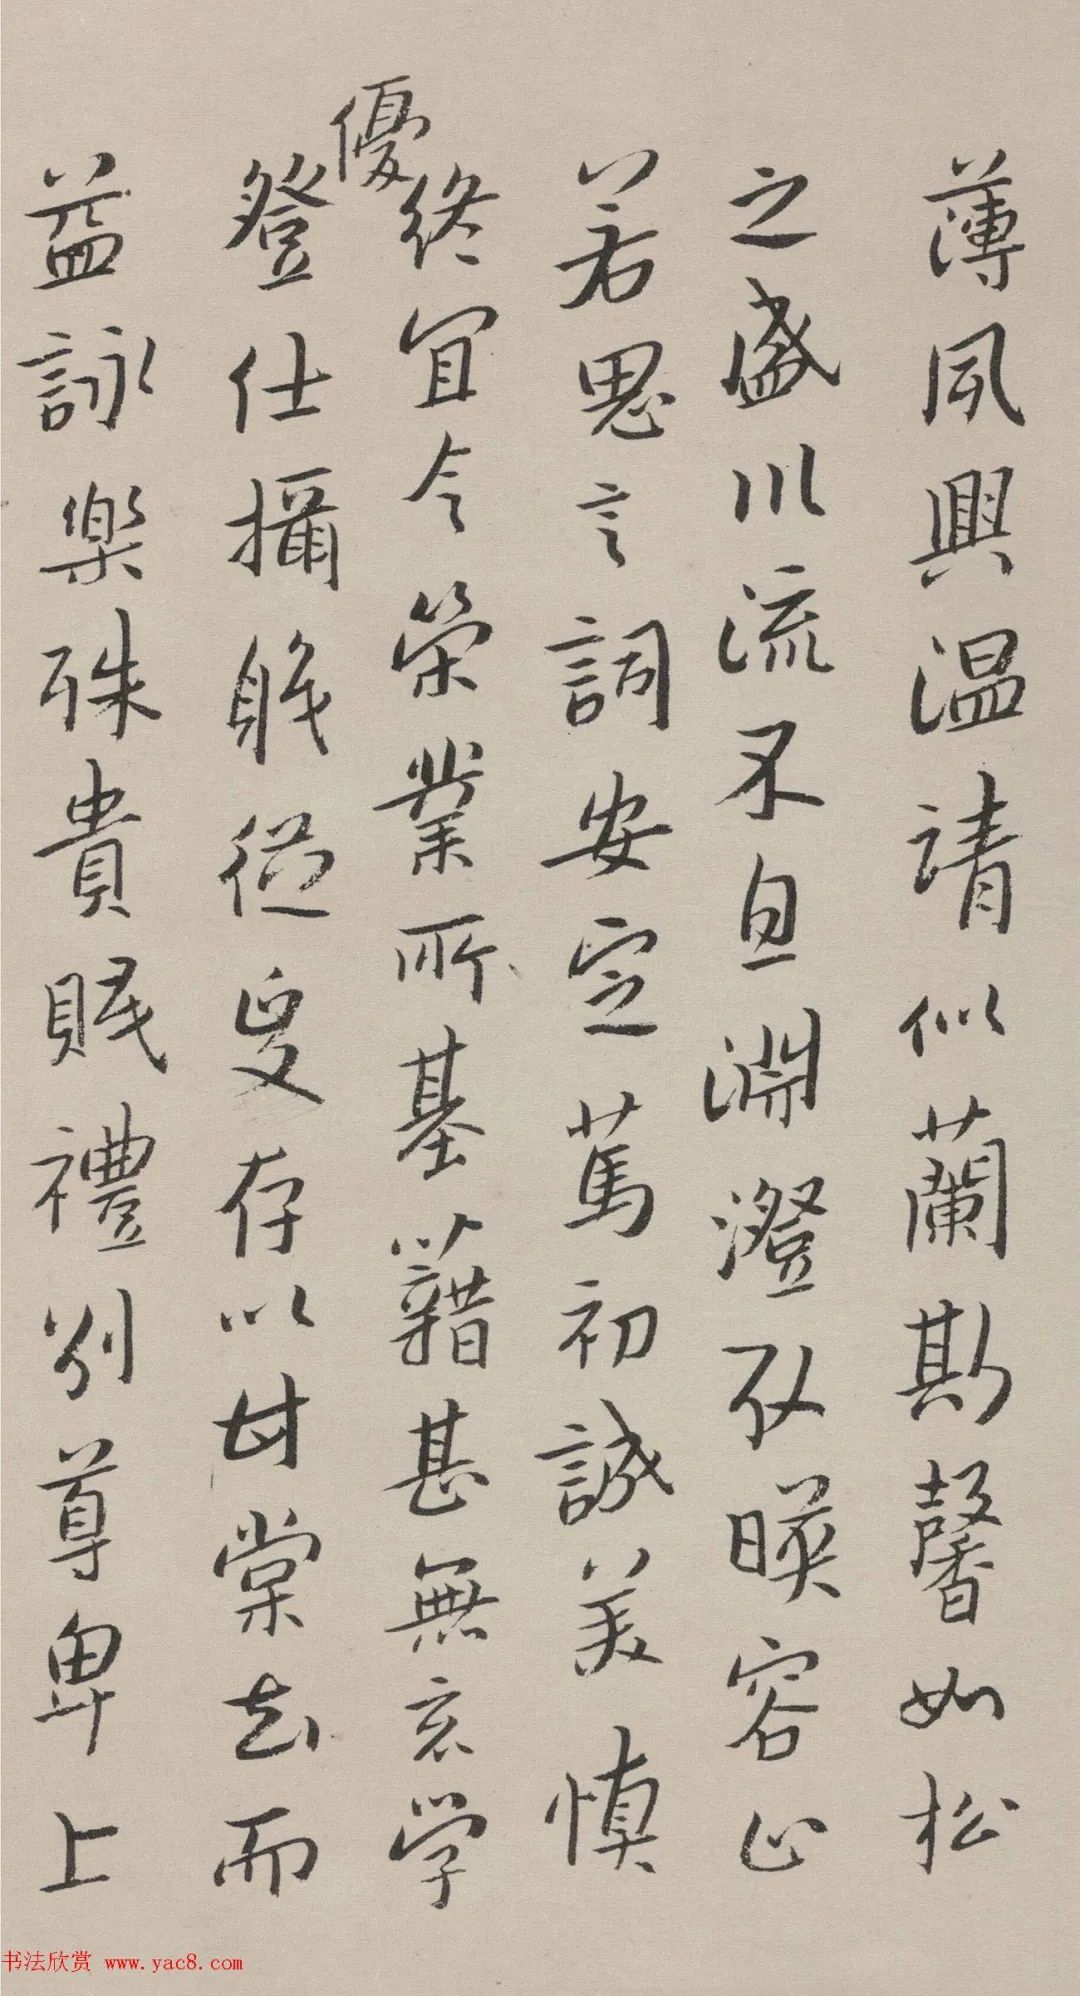 薄夙興温請似蘭斯馨如松
之盛川流不息淵澄取暎容止
若思言詞安定篤初誠美慎
終宜令榮業所基藉甚無竟學
優
登仕攝職從政存以甘棠去而
益詠樂殊貴賤禮別尊卑上
书法欣赏 www.yac8.com